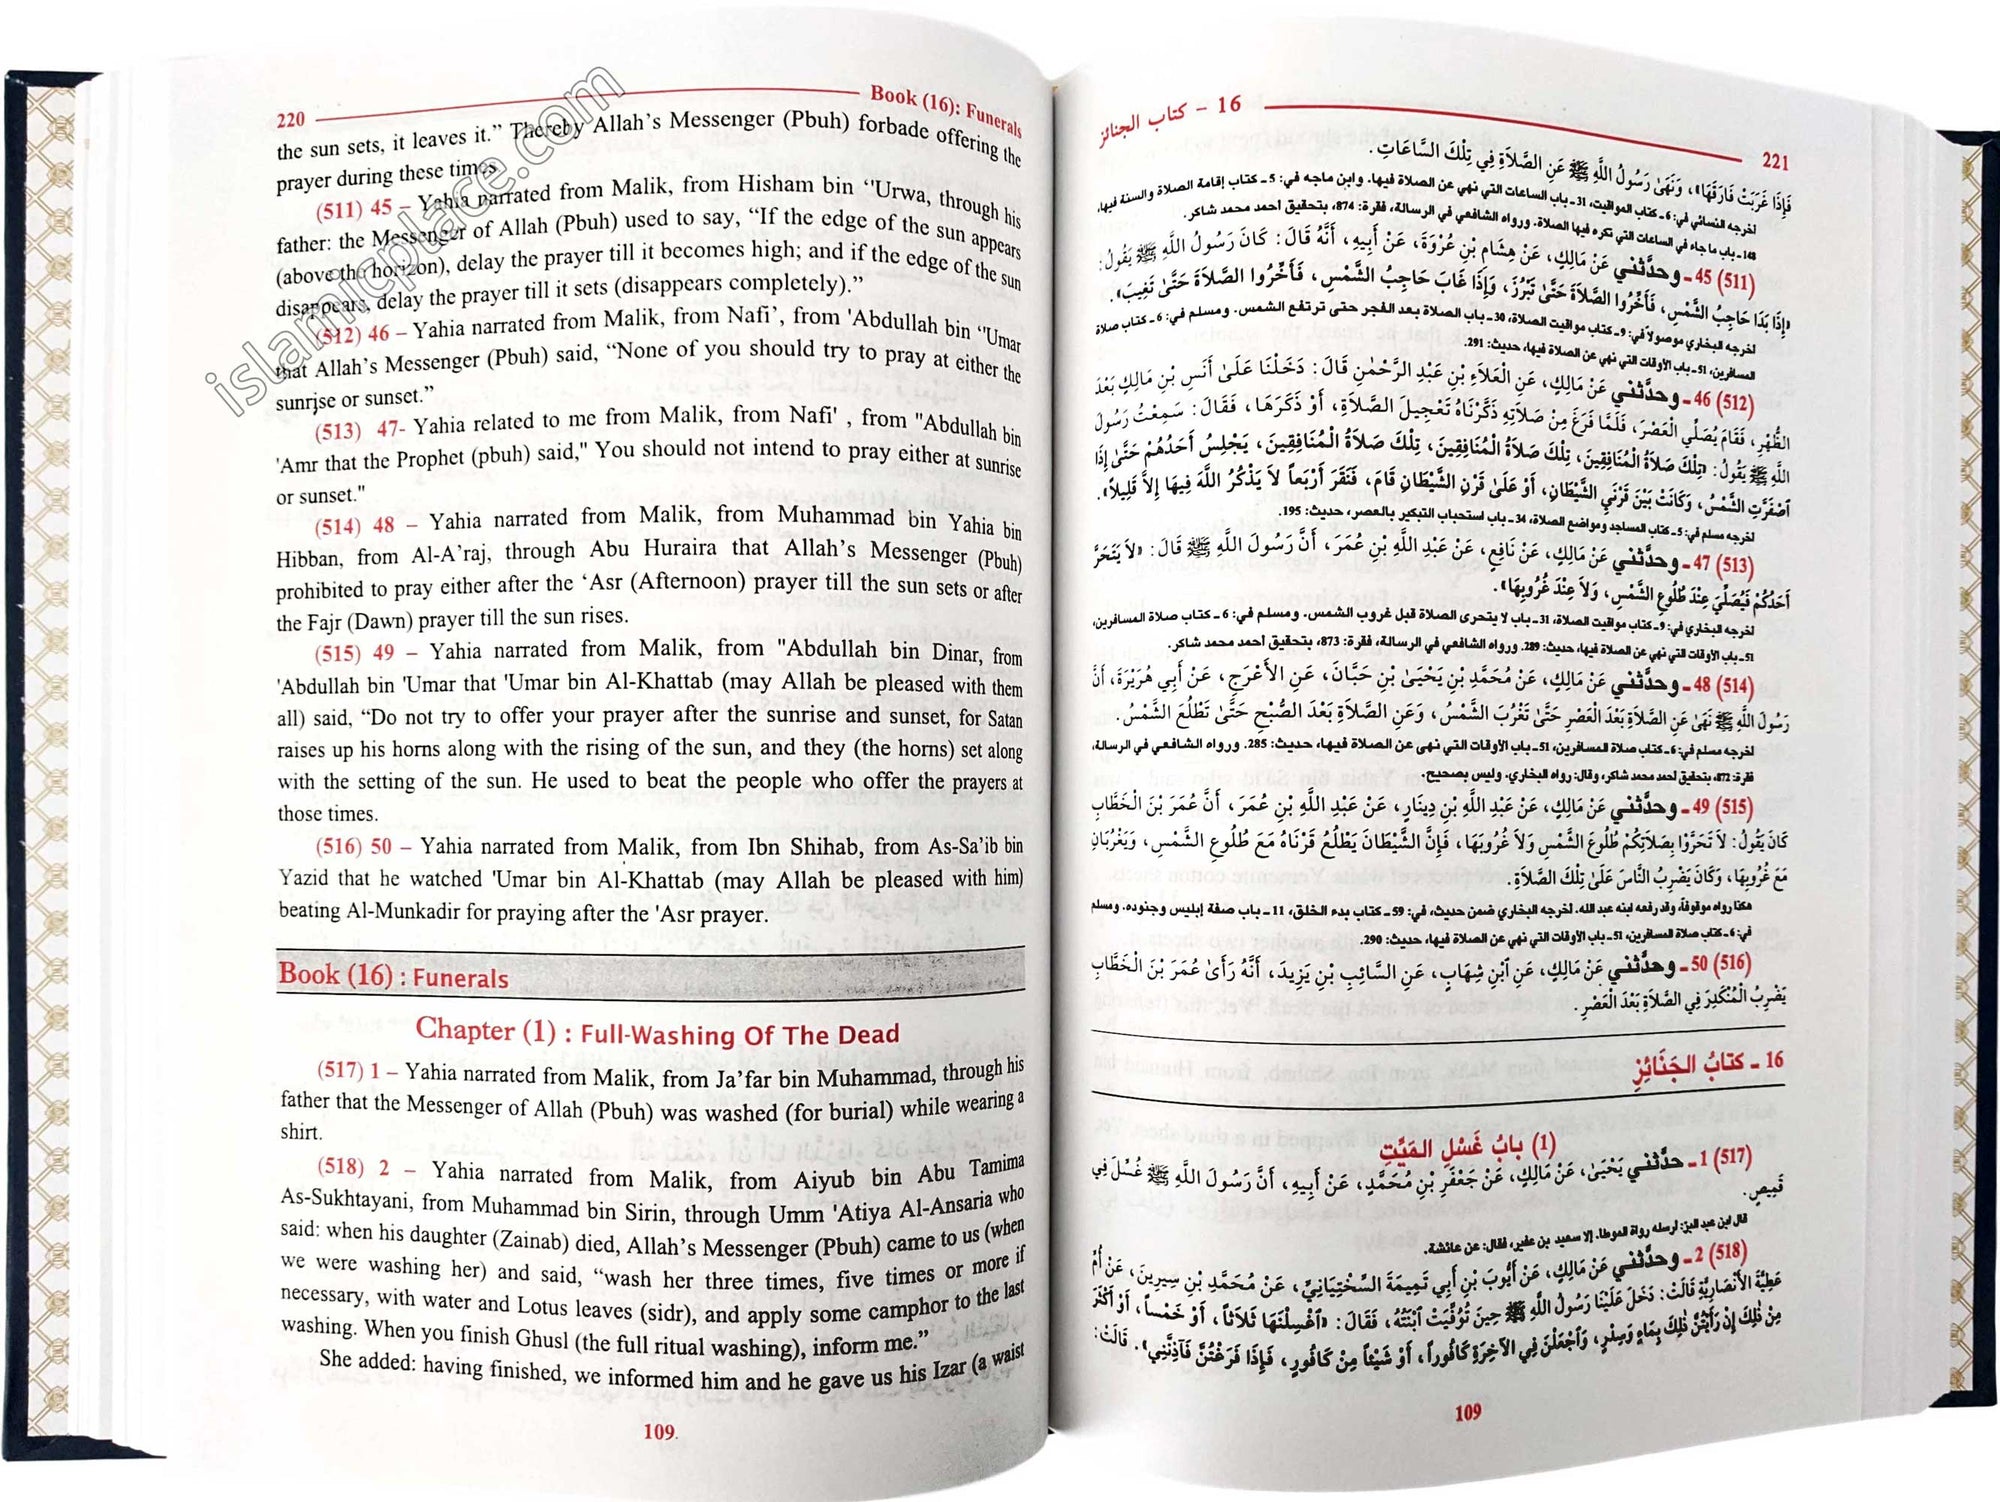 220
Book (16): Funerals
the sun sets, it leaves it.” Thereby Allah’s Messenger (Pbuh) forbade offering the
prayer during these times.
(511) 45 – Yahia narrated from Malik, from Hisham bin ‘'Urwa, through his
father: the Messenger of Allah (Pbuh) used to say, “If the edge of the sun appears
(above the horizon), delay the prayer till it becomes high; and if the edge of the sun
disappears, delay the prayer till it sets (disappears completely).”
(512) 46 – Yahia narrated from Malik, from Nafi’, from 'Abdullah bin “Umar
that Allah’s Messenger (Pbuh) said, “None of you should try to pray at either the
sunrise or sunset.”
(513) 47- Yahia related to me from Malik, from Nafi' , from "Abdullah bin
'Amr that the Prophet (pbuh) said," You should not intend to pray either at sunrise
or sunset."
(514) 48 – Yahia narrated from Malik, from Muhammad bin Yahia bin
Hibban, from Al-A’raj, through Abu Huraira that Allah’s Messenger (Pbuh)
prohibited to pray either after the ‘Asr (Afternoon) prayer till the sun sets or after
the Fajr (Dawn) prayer till the sun rises.
(515) 49 – Yahia narrated from Malik, from "Abdullah bin Dinar, from
'Abdullah bin 'Umar that 'Umar bin Al-Khattab (may Allah be pleased with them
all) said, “Do not try to offer your prayer after the sunrise and sunset, for Satan
raises up his horns along with the rising of the sun, and they (the horns) set along
with the setting of the sun. He used to beat the people who offer the prayers at
those times.
(516) 50 – Yahia narrated from Malik, from Ibn Shihab, from As-Sa’ib bin
Yazid that he watched 'Umar bin Al-Khattab (may Allah be pleased with him)
beating Al-Munkadir for praying after the 'Asr prayer.
Book (16) : Funerals
Chapter (1) : Full-Washing Of The Dead
(517) 1 – Yahia narrated from Malik, from Ja’far bin Muhammad, through his
father that the Messenger of Allah (Pbuh) was washed (for burial) while wearing a
shirt.
(518) 2 – Yahia narrated from Malik, from Aiyub bin Abu Tamima
As-Sukhtayani, from Muhammad bin Sirin, through Umm 'Atiya Al-Ansaria who
said: when his daughter (Zainab) died, Allah’s Messenger (Pbuh) came to us (when
we were washing her) and said, “wash her three times, five times or more if
necessary, with water and Lotus leaves (sidr), and apply some camphor to the last
washing. When you finish Ghusl (the full ritual washing), inform me.”
She added: having finished, we informed him and he gave us his Izar (a waist
109
islamicplace.com
16 - كتاب الجنائز
221
فَإِذَا غَرَبَتْ فَارَقَهَا»، وَنَهَىٰ رَسُولُ اللَّهِ ﷺ عَنِ الصَّلاَةِ فِي تِلْكَ السَّاعَاتِ.
اخرجه النسائي في: 6 ـ كتاب المواقيت، 31 ـ باب الساعات التي نهي عن الصلاة فيها. وابن ماجه في: 5 ـ كتاب إقامة الصلاة والسنة فيها،
148 ـ باب ما جاء في الساعات التي تكره فيها الصلاة. ورواه الشافعي في الرسالة، فقرة: 874، بتحقيق أحمد محمد شاكر.
(511) 45 ـ وحدَّثني عَنْ مَالِكٍ، عَنْ هِشَامِ بْنِ عُرْوَةَ، عَنْ أَبِيهِ، أَنَّهُ قَالَ: كَانَ رَسُولُ اللَّهِ ﷺ يَقُولُ:
«إِذَا بَدَا حَاجِبُ الشَّمْسِ، فَأَخِّرُوا الصَّلاَةَ حَتَّىٰ تَبْرُزَ، وَإِذَا غَابَ حَاجِبُ الشَّمْسِ، فَأَخِّرُوا الصَّلاَةَ حَتَّىٰ تَغِيبَ».
اخرجه البخاري موصولاً في: 9 ـ كتاب مواقيت الصلاة، 30 ـ باب الصلاة بعد الفجر حتى ترتفع الشمس. ومسلم في: 6 ـ كتاب صلاة
المسافرين، 51 ـ باب الأوقات التي نهي عن الصلاة فيها، حديث: 291.
(512) 46 ـ وحدَّثني عَنْ مَالِكٍ، عَنِ الْعَلاَءِ بْنِ عَبْدِ الرَّحْمٰنِ قَالَ: دَخَلْنَا عَلَىٰ أَنَسِ بْنِ مَالِكٍ بَعْدَ
الظُّهْرِ، فَقَامَ يُصَلِّي الْعَصْرَ، فَلَمَّا فَرَغَ مِنْ صَلاَتِهِ ذَكَّرْنَاهُ تَعْجِيلَ الصَّلاَةِ، أَوْ ذَكَرَهَا، فَقَالَ: سَمِعْتُ رَسُولَ
اللَّهِ ﷺ يَقُولُ: «تِلْكَ صَلاَةُ الْمُنَافِقِينَ، تِلْكَ صَلاَةُ الْمُنَافِقِينَ، تِلْكَ صَلاَةُ الْمُنَافِقِينَ، يَجْلِسُ أَحَدُهُمْ حَتَّىٰ إِذَا
ٱصْفَرَّتِ الشَّمْسُ، وَكَانَتْ بَيْنَ قَرْنَيِ الشَّيْطَانِ، أَوْ عَلَىٰ قَرْنِ الشَّيْطَانِ قَامَ، فَنَقَرَ أَرْبَعاً لاَ يَذْكُرُ اللَّهَ فِيهَا إِلاَّ قَلِيلاً».
اخرجه مسلم في: 5 ـ كتاب المساجد ومواضع الصلاة، 34 ـ باب استحباب التبكير بالعصر، حديث: 195.
(513) 47 ـ وحدَّثني عَنْ مَالِكٍ، عَنْ نَافِعٍ، عَنْ عَبْدِ اللَّهِ بْنِ عُمَرَ، أَنَّ رَسُولَ اللَّهِ ﷺ قَالَ: «لاَ يَتَحَرَّ
أَحَدُكُمْ فَيُصَلِّيَ عِنْدَ طُلُوعِ الشَّمْسِ، وَلاَ عِنْدَ غُرُوبِهَا».
اخرجه البخاري في: 9 ـ كتاب مواقيت الصلاة، 31 ـ باب لا يتحرى الصلاة قبل غروب الشمس. ومسلم في: 6 ـ كتاب صلاة المسافرين،
51 ـ باب الأوقات التي نهي عن الصلاة فيها، حديث: 289. ورواه الشافعي في الرسالة، فقرة: 873، بتحقيق أحمد محمد شاكر.
(514) 48 ـ وحدَّثني عَنْ مَالِكٍ، عَنْ مُحَمَّدِ بْنِ يَحْيَىٰ بْنِ حَبَّانَ، عَنِ الأَعْرَجِ، عَنْ أَبِي هُرَيْرَةَ، أَنَّ
رَسُولَ اللَّهِ ﷺ نَهَىٰ عَنِ الصَّلاَةِ بَعْدَ الْعَصْرِ حَتَّىٰ تَغْرُبَ الشَّمْسُ، وَعَنِ الصَّلاَةِ بَعْدَ الصُّبْحِ حَتَّىٰ تَطْلُعَ الشَّمْسُ.
اخرجه مسلم في: 6 ـ كتاب صلاة المسافرين، 51 ـ باب الأوقات التي نهي عن الصلاة فيها، حديث: 285. ورواه الشافعي في الرسالة،
فقرة: 872، بتحقيق أحمد محمد شاكر، وقال: رواه البخاري. وليس بصحيح.
(515) 49 ـ وحدَّثني عَنْ مَالِكٍ، عَنْ عَبْدِ اللَّهِ بْنِ دِينَارٍ، عَنْ عَبْدِ اللَّهِ بْنِ عُمَرَ، أَنَّ عُمَرَ بْنَ الْخَطَّابِ
كَانَ يَقُولُ: لاَ تَحَرَّوْا بِصَلاَتِكُمْ طُلُوعَ الشَّمْسِ وَلاَ غُرُوبَهَا، فَإِنَّ الشَّيْطَانَ يَطْلُعُ قَرْنَاهُ مَعَ طُلُوعِ الشَّمْسِ، وَيَغْرُبَانِ
مَعَ غُرُوبِهَا، وَكَانَ يَضْرِبُ النَّاسَ عَلَىٰ تِلْكَ الصَّلاَةِ.
هكذا رواه موقوفاً، وقد رفعه ابنه عبد الله. اخرجه البخاري ضمن حديث، في: 59 ـ كتاب بدء الخلق، 11 ـ باب صفة إبليس وجنوده. ومسلم
في: 6 ـ كتاب صلاة المسافرين، 51 ـ باب الأوقات التي نهي عن الصلاة فيها، حديث: 290.
(516) 50 ـ وحدَّثني عَنْ مَالِكٍ، عَنِ ٱبْنِ شِهَابٍ، عَنِ السَّائِبِ بْنِ يَزِيدَ، أَنَّهُ رَأَىٰ عُمَرَ بْنَ الْخَطَّابِ
يَضْرِبُ الْمُنْكَدِرَ فِي الصَّلاَةِ بَعْدَ الْعَصْرِ.
16 ـ كتَابُ الجَنَائِزِ
(1) بابُ غَسْلِ المَيِّتِ
(517) 1 ـ حدَّثني يَحْيَىٰ، عَنْ مَالِكٍ، عَنْ جَعْفَرِ بْنِ مُحَمَّدٍ، عَنْ أَبِيهِ، أَنَّ رَسُولَ اللَّهِ ﷺ غُسِّلَ فِي
قَمِيصٍ.
قال ابن عبد البر: ارسله رواة الموطا. إلا سعيد بن عفير، فقال: عن عائشة.
(518) 2 ـ وحدَّثني عَنْ مَالِكٍ، عَنْ أَيُّوبَ بْنِ أَبِي تَمِيمَةَ السَّخْتِيَانِيِّ، عَنْ مُحَمَّدِ بْنِ سِيرِينَ، عَنْ أُمِّ
عَطِيَّةَ الأَنْصَارِيَّةِ قَالَتْ: دَخَلَ عَلَيْنَا رَسُولُ اللَّهِ ﷺ حِينَ تُوُفِّيَتِ ٱبْنَتُهُ، فَقَالَ: «ٱغْسِلْنَهَا ثَلاَثاً، أَوْ خَمْساً، أَوْ أَكْثَرَ
مِنْ ذٰلِكَ إِنْ رَأَيْتُنَّ ذٰلِكَ بِمَاءٍ وَسِدْرٍ، وَٱجْعَلْنَ فِي الآخِرَةِ كَافُوراً، أَوْ شَيْئاً مِنْ كَافُورٍ، فَإِذَا فَرَغْتُنَّ فَآذِنَّنِي». قَالَتْ:
109